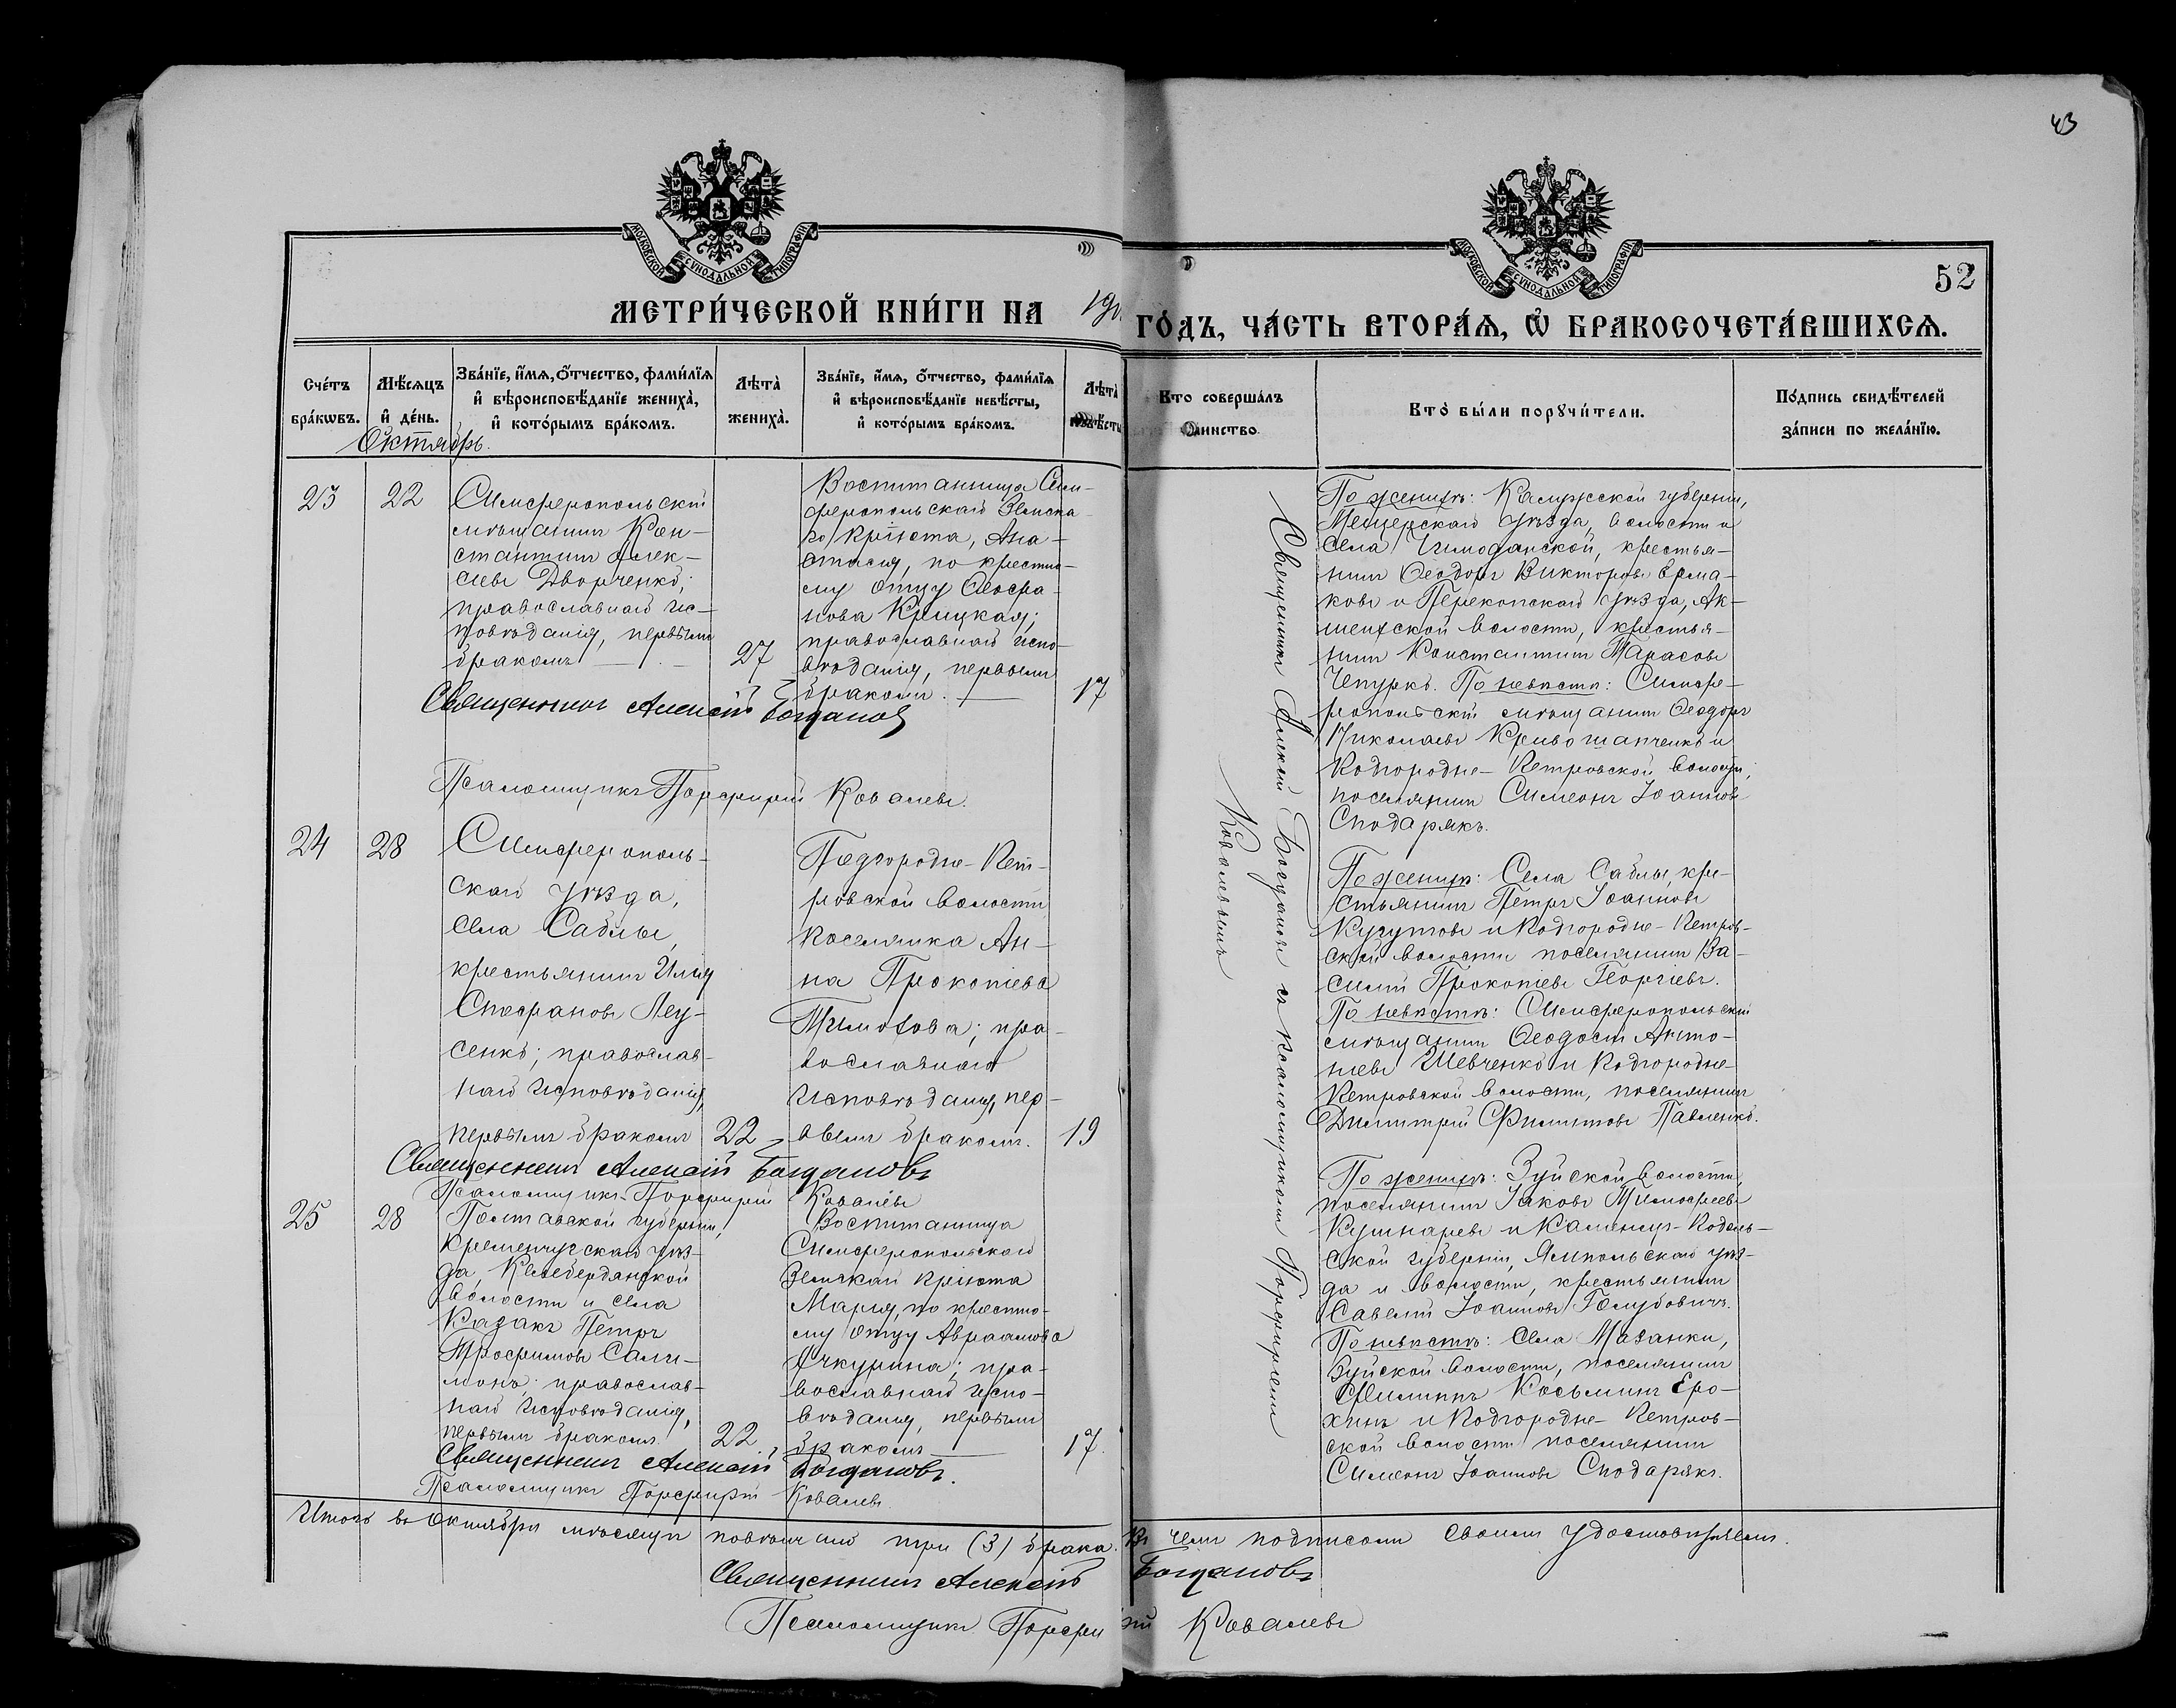 43
МОСКОВСКОЙ СѴНОДАЛЬНОЙ ТИПОГРАФІИ
МОСКОВСКОЙ СѴНОДАЛЬНОЙ ТИПОГРАФІИ
52
МЕТРИ́ЧЕСКОЙ КНИ́ГИ НА 190
ГО́ДЪ, ЧА́СТЬ ВТОРА́Я, Ѽ БРАКОСОЧЕТА́ВШИХСЯ.
Сче́тъ бра́кѡвъ.
Мѣ́сяцъ и҆ де́нь.
Зва́нїе, и҆́мя, ѻ҆́тчество, фами́лїя и҆ вѣроисповѣ́данїе жениха̀, и҆ кото́рымъ бра́комъ.
Лѣта̀ жениха̀.
Зва́нїе, и҆́мя, ѻ҆́тчество, фами́лїя и҆ вѣроисповѣ́данїе невѣ́сты, и҆ кото́рымъ бра́комъ.
Лѣта̀ невѣ́сты
Кто соверша́лъ таинство.
Кто̀ бы́ли порꙋчи́тели.
По́дпись свидѣ́телей за́писи по жела́нїю.
Октябрь.
23
22
Симферопольскій
мѣщанинъ Кон-
стантинъ Алек-
сіевъ Дворченко;
православнаго ис-
повѣданія, первымъ
бракомъ
27
Воспитанница Сим-
феропольскаго Земска-
го Пріюта, Ана-
стасія, по крестно-
му отцу Ѳеофа-
нова Крицкая;
православнаго испо-
вѣданія, первымъ
бракомъ.
17
Священникъ Алексій Богдановъ
Псаломщикъ Порфирій Ковалевъ.
По женихѣ: Калужской губерніи,
Мещерскаго уѣзда, волости и
села Чемодановской, крестья-
нинъ Ѳеодоръ Викторовъ Ерма-
ковъ и Перекопскаго уѣзда, Ак-
шеихской волости, крестья-
нинъ Константинъ Тарасовъ
Чепурко. По невѣстѣ: Симфе-
ропольскій мѣщанинъ Ѳеодоръ
Николаевъ Кривошапченко и
Подгородне-Петровской волости,
поселянинъ Симеонъ Іоанновъ
Сподарякъ.
Священникъ Алексій Богдановъ съ псаломщикомъ Порфиріемъ
Ковалевымъ
24
28
Симферополь-
скаго уѣзда,
села Саблы,
крестьянинъ Илія
Стефановъ Леу-
сенко; православ-
наго исповѣданія,
первымъ бракомъ
22
Подгородне-Пет-
ровской волости
поселянка Ан-
на Прокопіева
Тимотова; пра-
вославнаго
исповѣданія, пер-
вымъ бракомъ.
19
Священникъ Алексій Богдановъ
Псаломщикъ Порфирій Ковалёвъ
По женихѣ: Села Саблы, кре-
стьянинъ Петръ Іоанновъ
Кугутовъ и Подгородне-Петров-
ской волости поселянинъ Ва-
силій Прокопіевъ Георгіевъ.
По невѣстѣ: Симферопольскій
мѣщанинъ Ѳеодосій Анто-
ніевъ Шевченко и Подгородне-
Петровской волости, поселянинъ
Димитрій Филипповъ Павленко.
25
28
Полтавской губерніи,
Кременчугскаго уѣз-
да, Келебердянской
волости и села
Казакъ Петръ
Трофимовъ Сали-
монъ; православ-
наго исповѣданія,
первымъ бракомъ.
22
Воспитанница
Симферопольскаго
Земскаго пріюта
Марія, по крестно-
му отцу Авраамова
Очкурина; пра-
вославнаго испо-
вѣданія, первымъ
бракомъ
17.
Священникъ Алексій Богдановъ.
Псаломщикъ Порфирій Ковалевъ.
По женихѣ: Зуйской волости,
поселянинъ Іаковъ Тимофеевъ
Кушнаревъ и Каменецъ-Подоль-
ской губерніи, Ямпольскаго уѣз-
да и волости, крестьянинъ
Савелій Іоанновъ Голубовичъ.
По невѣстѣ: Села Мазанки,
Зуйской волости, поселянинъ
Филиппъ Косьминъ Еро-
хинъ и Подгородне-Петров-
ской волости поселянинъ
Симеонъ Іоанновъ Сподарякъ.
Итого въ октябрѣ мѣсяцѣ повѣнчано три (3) брака. Въ чемъ подписомъ своимъ удостовѣряемъ.
Священникъ Алексій Богдановъ
Псаломщикъ Порфирій Ковалевъ